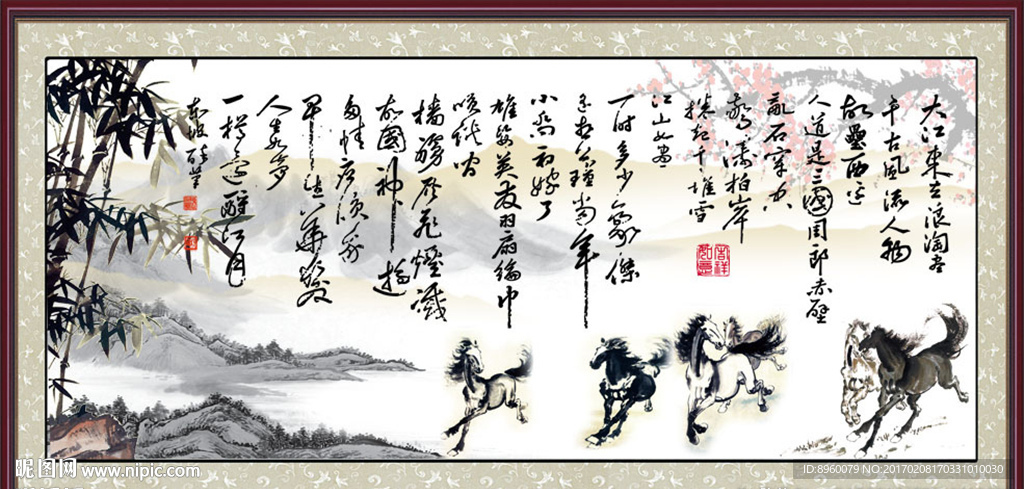 大江東去浪淘盡
千古風流人物
故壘西邊
人道是三國周郎赤壁
亂石穿空
驚濤拍岸
捲起千堆雪
江山如畫
一时多少豪傑
遙想公瑾當年
小喬初嫁了
雄姿英发羽扇綸巾
笑談間
樯櫓灰飛煙滅
故國神遊
多情應笑我
早生華髮
人生如夢
一樽還酹江月
東坡
吉祥如意
昵图网 www.nipic.com
ID:8960079 NO:20170208170331010030